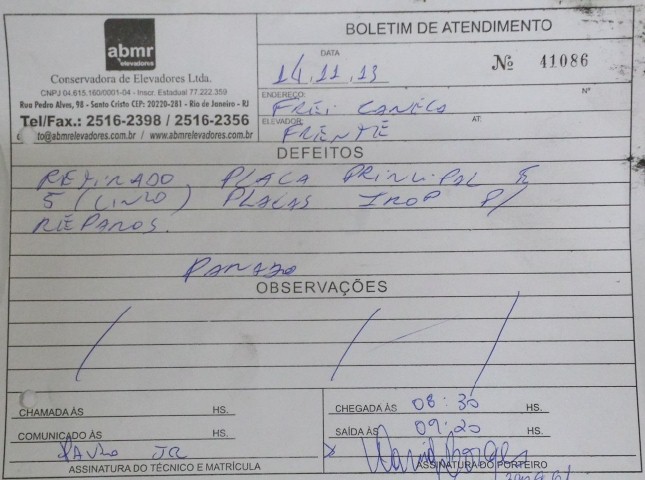 abmr
elevadores
Conservadora de Elevadores Ltda.
CNPJ 04.615.160/0001-04 - Inscr. Estadual 77.222.359
Rua Pedro Alves, 98 - Santo Cristo CEP: 20220-281 - Rio de Janeiro - RJ
Tel/Fax.: 2516-2398 / 2516-2356
to@abmrelevadores.com.br / www.abmrelevadores.com.br
BOLETIM DE ATENDIMENTO
DATA
14.11.13
Nº 41086
ENDEREÇO: FREI CANECA Nº
ELEVADOR: FRENTE AT:
DEFEITOS
RETIRADO, PLACA PRINCIPAL E
5 (CINCO) PLACAS INOP P/
REPAROS.
PARADO
OBSERVAÇÕES
CHAMADA ÀS HS.
COMUNICADO ÀS HS.
PAULO JR
ASSINATURA DO TÉCNICO E MATRÍCULA
CHEGADA ÀS 08:30 HS.
SAÍDA ÀS 09:20 HS.
ASSINATURA DO PORTEIRO